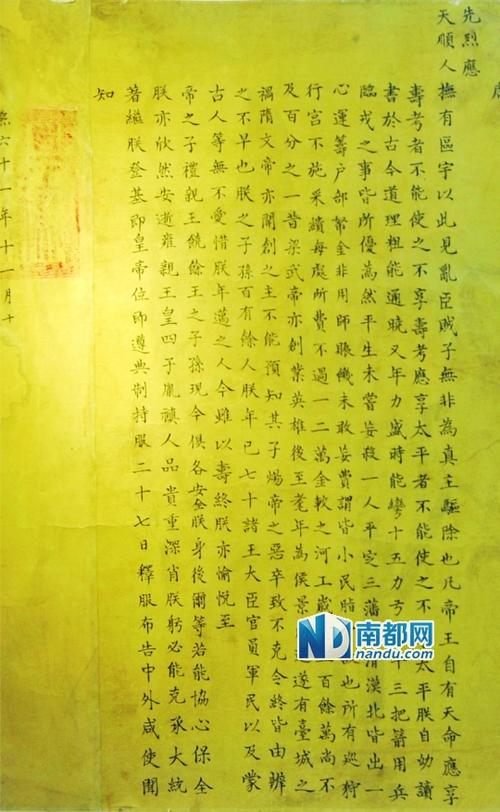 先烈應
天順人撫有區宇以此見亂臣賊子無非為真主驅除也凡帝王自有天命應享
壽考者不能使之不享壽考應享太平者不能使之不太平朕自幼讀
書於古今道理粗能通曉又年力盛時能彎十五力弓十三把箭用兵
臨戎之事皆所優為然平生未嘗妄殺一人平定三藩清漠北皆出一
心運籌戶部帑金非用師賑饑未敢妄費謂皆小民脂也所有巡狩
行宮不施采繢每處所費不過一二萬金較之河工歲百餘萬尚不
及百分之一昔梁武帝亦創業英雄後至耄年為侯景遂有臺城之
禍隋文帝亦開創之主不能預知其子煬帝之惡卒致不克令終皆由辨
之不早也朕之子孫百有餘人朕年已七十諸王大臣官員軍民以及蒙
古人等無不愛惜朕年邁之人今雖以壽終朕亦愉悅至
帝之子禮親王饒餘王之子孫現今俱各安全朕身後爾等若能協心保全
朕亦欣然安逝雍親王皇四子胤禛人品貴重深肖朕躬必能克承大統
著繼朕登基即皇帝位即遵典制持服二十七日釋服布告中外咸使聞
知
熙六十一年十一月十
ND 南都网
nandu.com